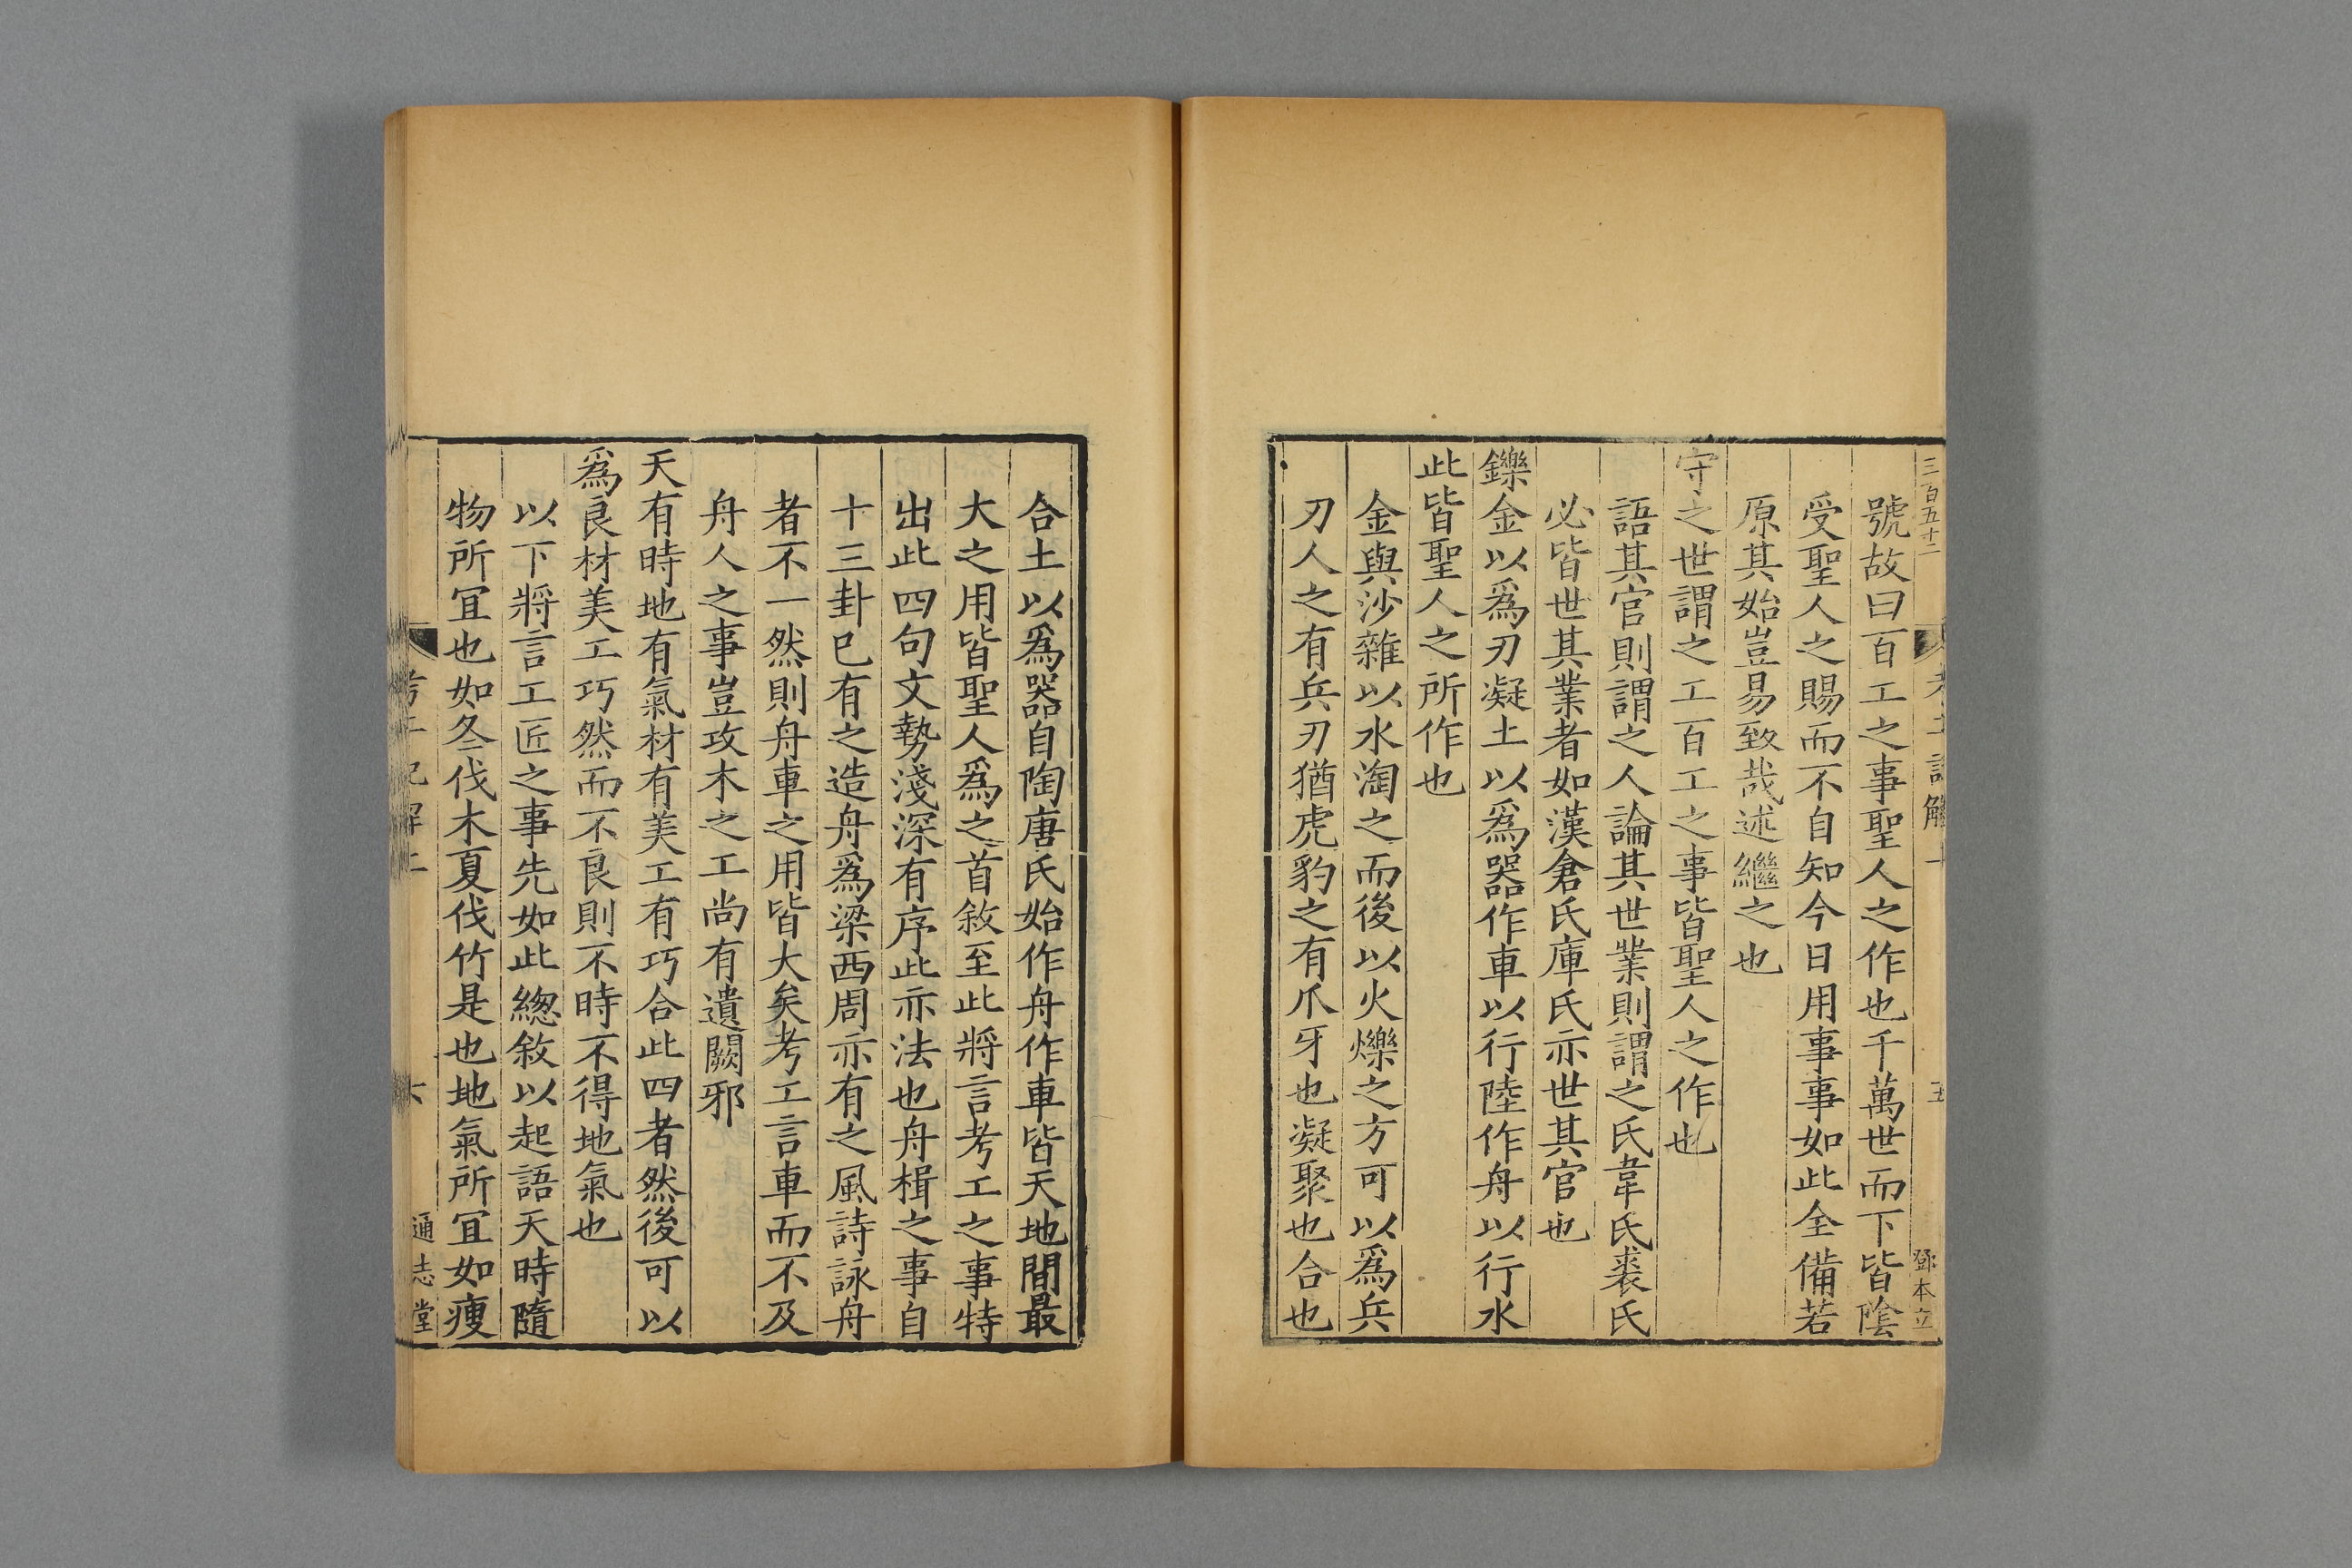 三百五十二
號故曰百工之事聖人之作也千萬世而下皆陰
受聖人之賜而不自知今日用事事如此全備若
原其始豈易致哉述繼之也
守之世謂之工百工之事皆聖人之作也
語其官則謂之人論其世業則謂之氏韋氏裘氏
必皆世其業者如漢倉氏庫氏亦世其官也
鑠金以爲刃凝土以爲器作車以行陸作舟以行水
此皆聖人之所作也
金與沙雜以水淘之而後以火爍之方可以爲兵
刃人之有兵刃猶虎豹之有爪牙也凝聚也合也
鄧本立
合土以爲器自陶唐氏始作舟作車皆天地間最
大之用皆聖人爲之首敘至此將言考工之事特
出此四句文勢淺深有序此亦法也舟楫之事自
十三卦已有之造舟爲梁西周亦有之風詩詠舟
者不一然則舟車之用皆大矣考工言車而不及
舟人之事豈攻木之工尚有遺闕邪
天有時地有氣材有美工有巧合此四者然後可以
爲良材美工巧然而不良則不時不得地氣也
以下將言工匠之事先如此總敘以起語天時隨
物所冝也如冬伐木夏伐竹是也地氣所冝如瘦
通志堂